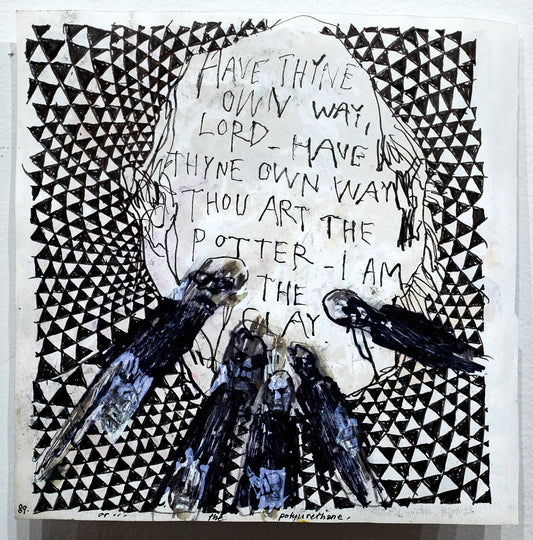 HAVE THYNE
OWN WAY,
LORD - HAVE
THYNE OWN WAY
THOU ART THE
POTTER - I AM
THE
CLAY.
89. or... the polyurethane.